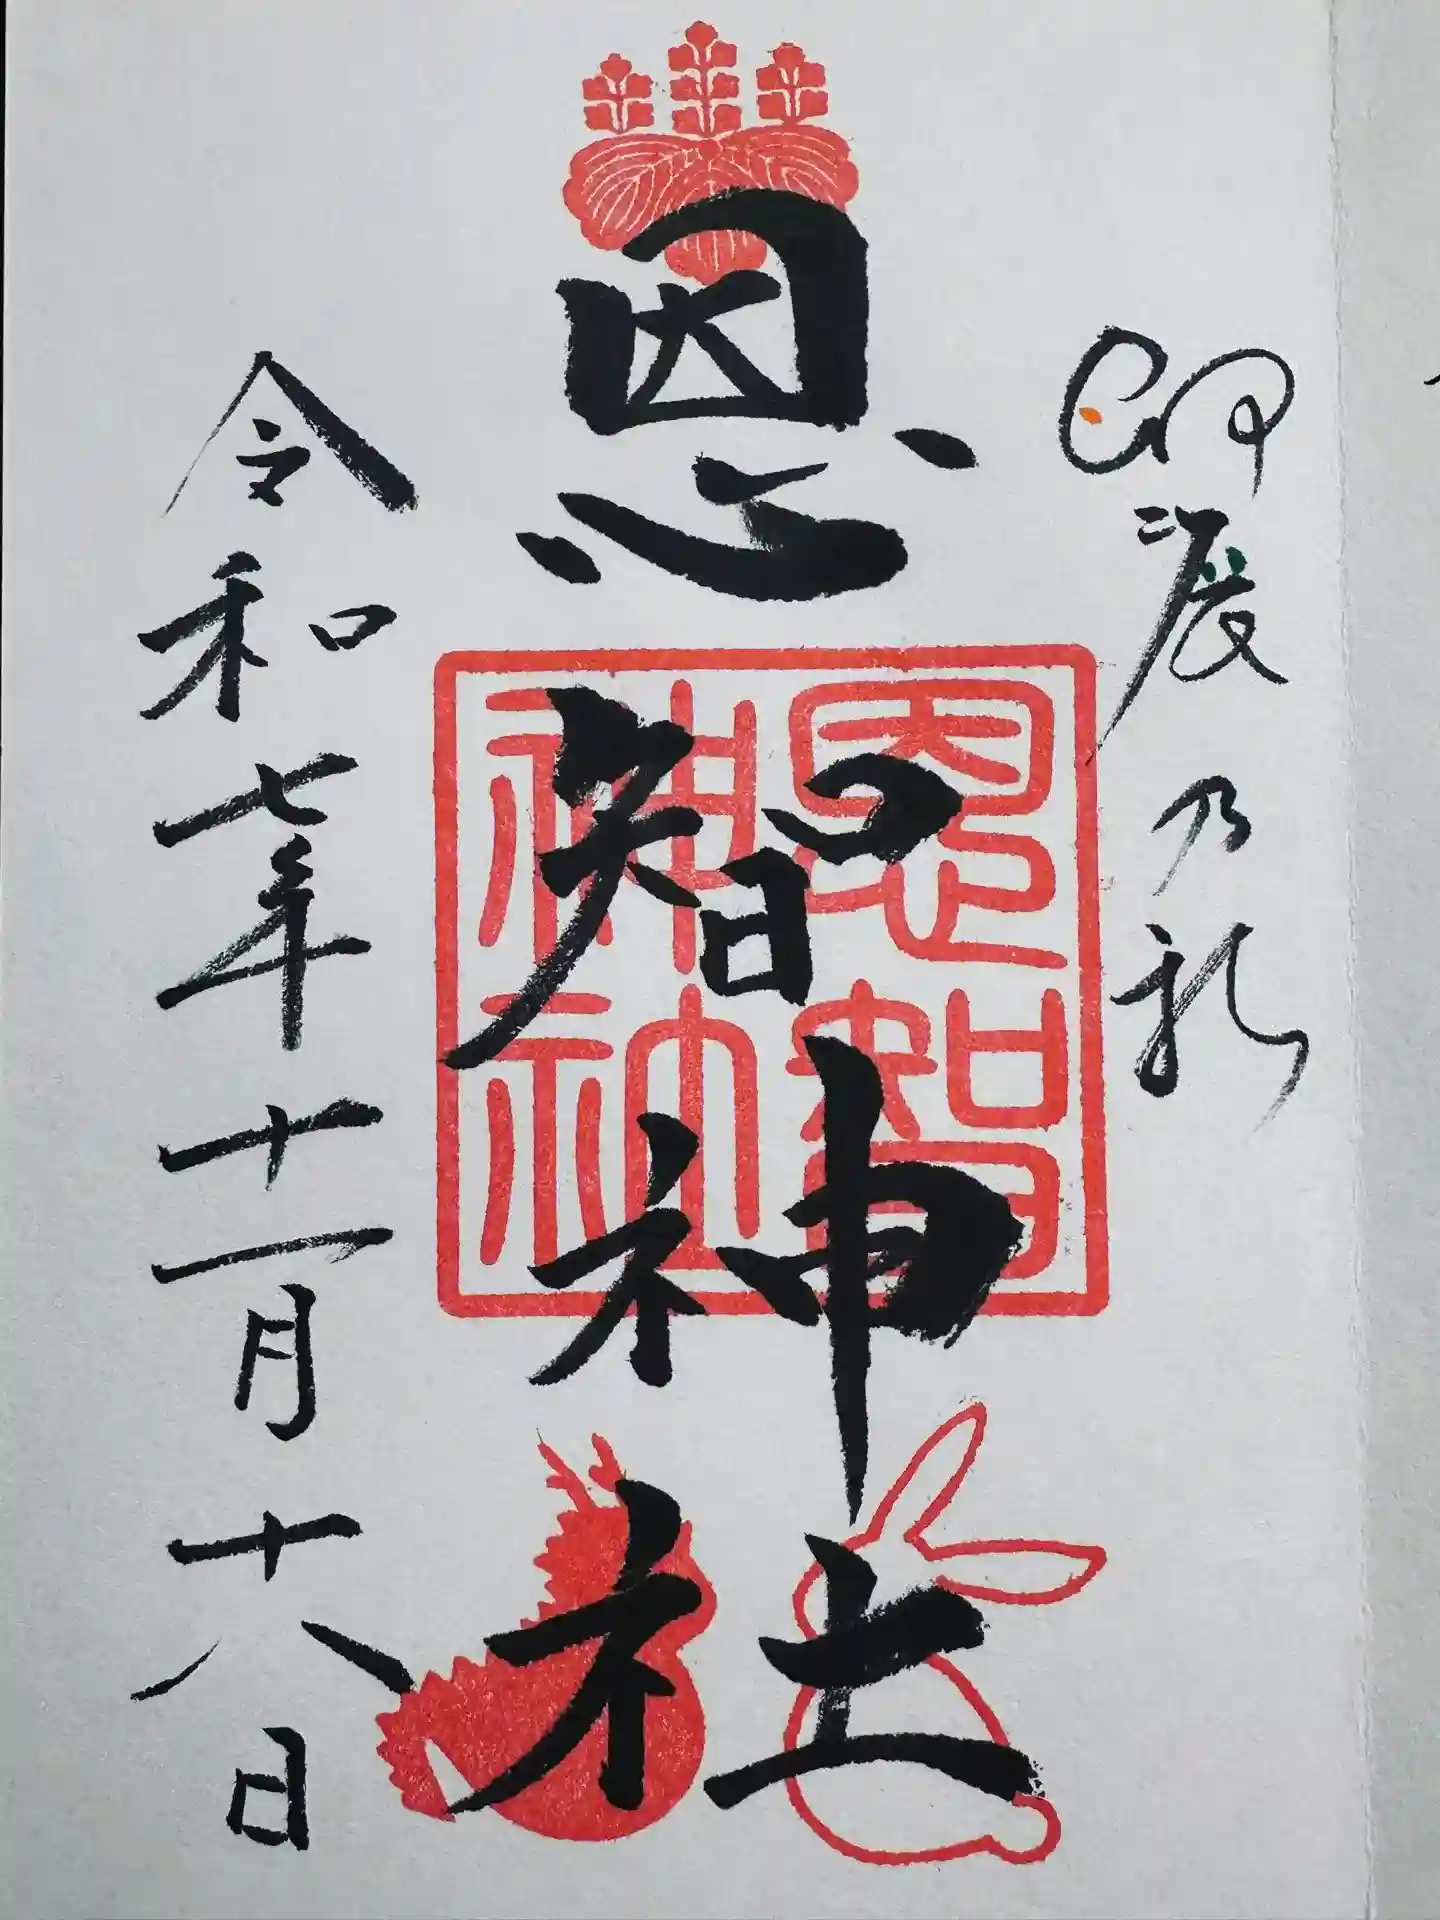 卯辰乃祈
恩智神社
恩智
神社
令和七年十一月十八日